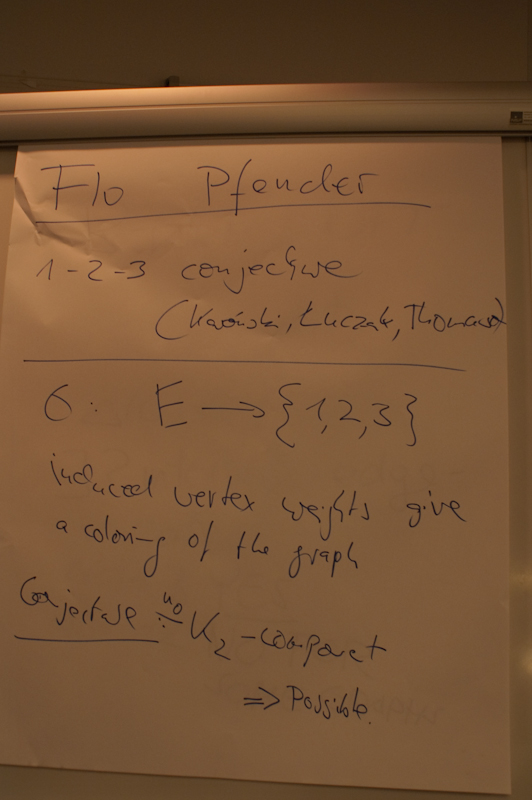 Flo Pfender
1-2-3 conjecture
(Karoński, Łuczak, Thomason)
6: E → {1,2,3}
induced vertex weights give
a coloring of the graph
Conjecture: no K₂-component
⇒ Possible.